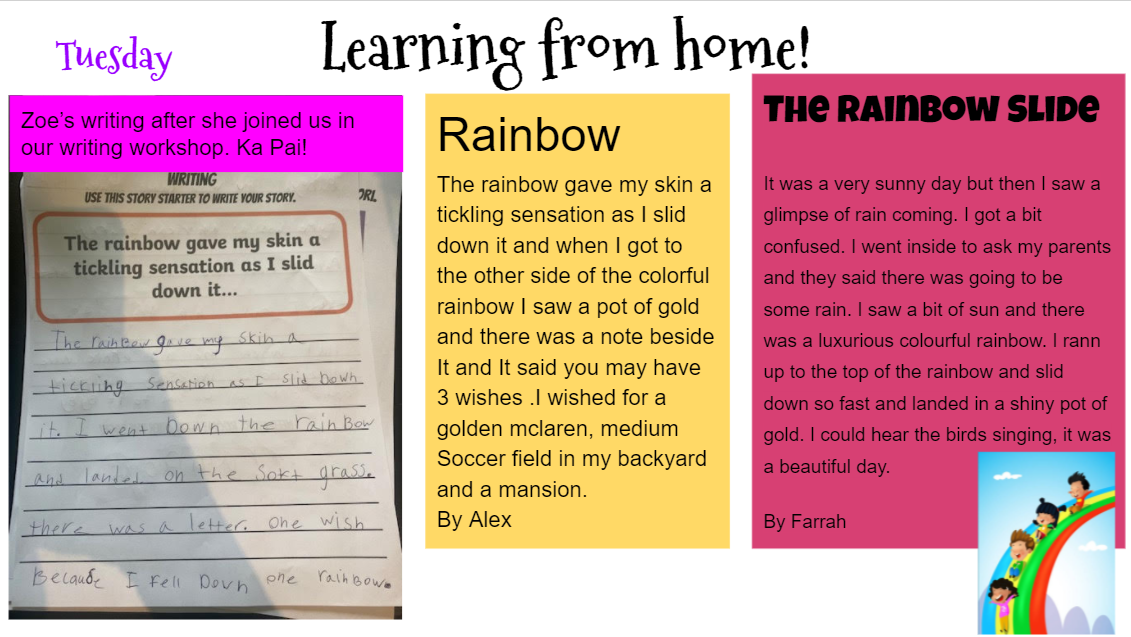 Tuesday
Learning from home!
Zoe's writing after she joined us in
our writing workshop. Ka Pai!
WRITING
USE THIS STORY STARTER TO WRITE YOUR STORY.
The rainbow gave my skin a
tickling sensation as I slid
down it...
The rainbow gave my skin a
tickling sensation as I slid Down
it. I went Down the rainBow
and landed on the Soft grass.
there was a letter. One wish
Because I Fell Down one rainBow.
Rainbow
The rainbow gave my skin a
tickling sensation as I slid
down it and when I got to
the other side of the colorful
rainbow I saw a pot of gold
and there was a note beside
It and It said you may have
3 wishes .I wished for a
golden mclaren, medium
Soccer field in my backyard
and a mansion.
By Alex
The Rainbow Slide
It was a very sunny day but then I saw a
glimpse of rain coming. I got a bit
confused. I went inside to ask my parents
and they said there was going to be
some rain. I saw a bit of sun and there
was a luxurious colourful rainbow. I rann
up to the top of the rainbow and slid
down so fast and landed in a shiny pot of
gold. I could hear the birds singing, it was
a beautiful day.
By Farrah